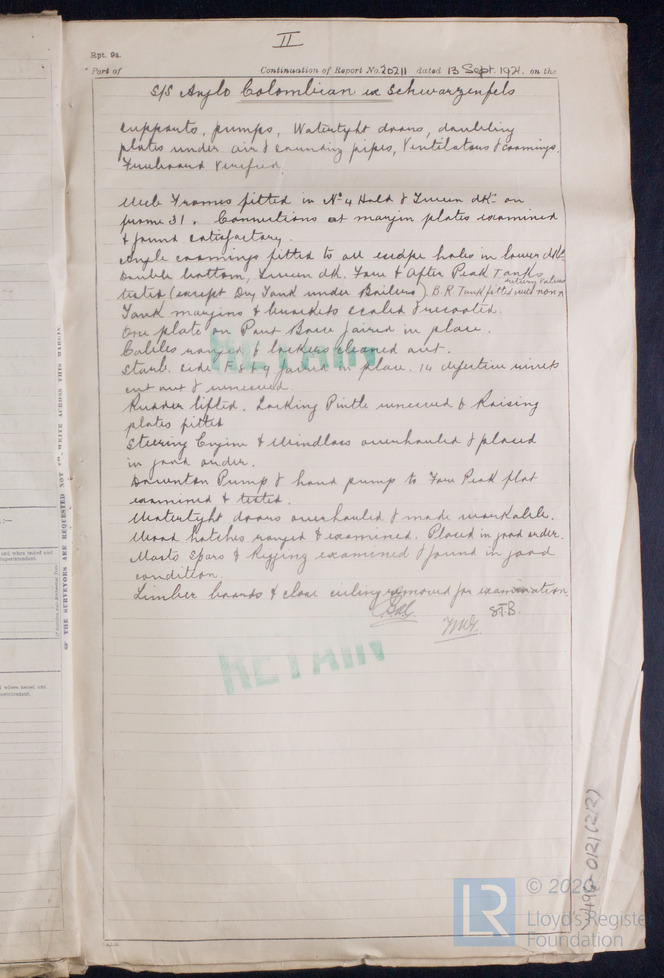 II
Rpt. 9a.
Port of Continuation of Report No. 20211 dated 13 Sept. 1921. on the
S/S Anglo Colombian ex Schwarzenfels
supports, pumps, Watertight doors, doubling
plates under air & sounding pipes, Ventilators & coamings.
Freeboard Verified.
Web Frames fitted in No 4 Hold & Tween dk on
frame 31. Connections at margin plates examined
& found satisfactory.
Angle coamings fitted to all escape holes in lower dk.
Double bottom, Tween dk. Fore & After Peak Tanks
tested (except Dry Tank under Boilers). B.R. Tank fitted with non
return valves
Tank margins & brackets scaled & recoated.
One plate on Port Bow faired in place.
Cables ranged & lockers cleaned out.
Starb. side F 8 & 9 faired in place. 14 defective rivets
cut out & renewed.
Rudder lifted. Locking Pintle renewed & Raising
plates fitted
Steering Engine & Windlass overhauled & placed
in good order.
Downton Pump & hand pump to Fore Peak flat
examined & tested.
Watertight doors overhauled & made workable.
Wood hatches ranged & examined. Placed in good order.
Masts Spars & Rigging examined & found in good
condition.
Limber boards & close ceiling removed for examination
S.T.B.
RETAIN
RETAIN
OF THE SURVEYORS ARE REQUESTED NOT TO WRITE ACROSS THIS MARGIN.
Lloyd's Register
Foundation
LR